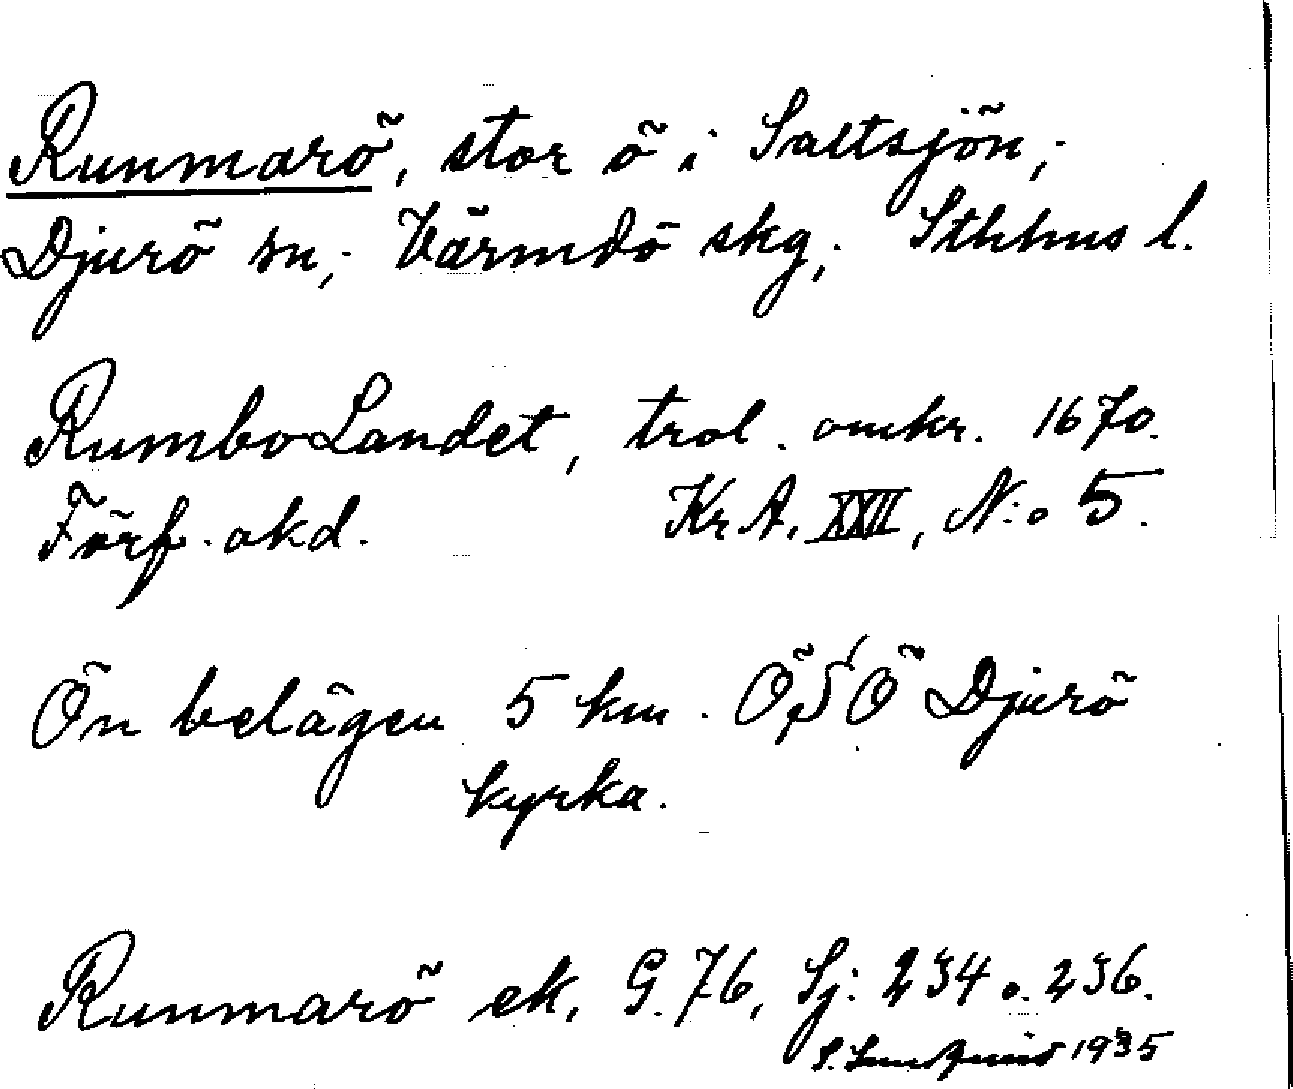 Runmarö, stor ö i Saltsjön,;
Djurö sn,; Värmdö skg,; Sthlms l.
RumboLandet, trol. omkr. 1670.
Förf. okd. Kr A. XXII, N:o 5.
Ön belägen 5 km. ÖSÖ Djurö
kyrka.
Runmarö ek, G. 76, Sj: 234 o. 236.
S. Lundquist 1935